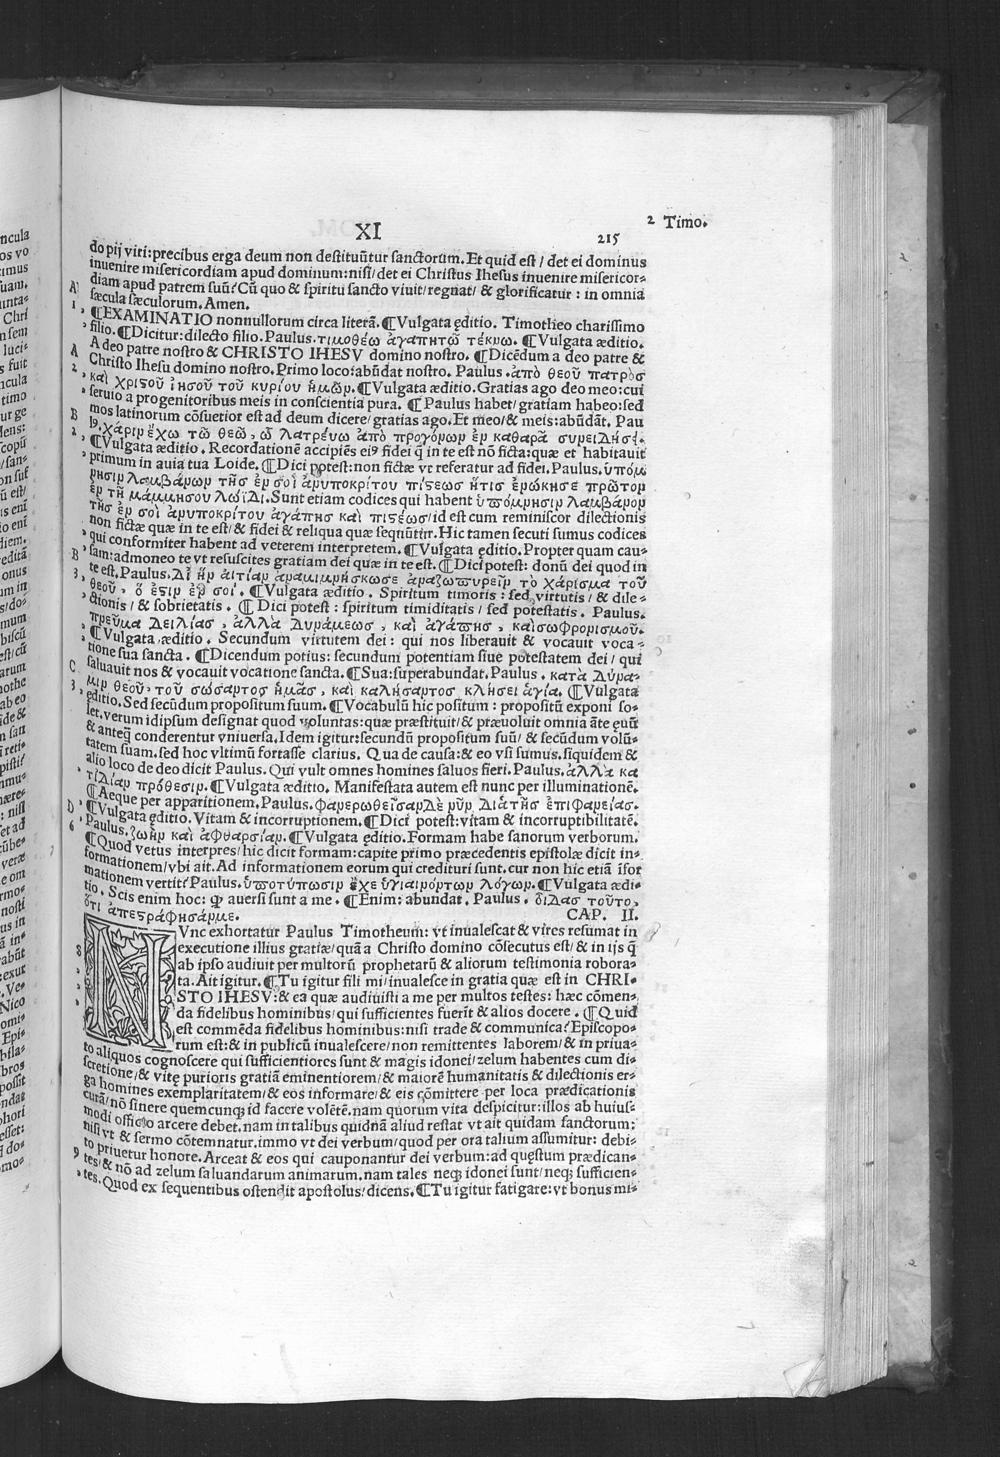 XI
215
2 Timo.
do pij viri: precibus erga deum non destituūtur sanctorum. Et quid est / det ei dominus
inuenire misericordiam apud dominum: nisi / det ei Christus Ihesus inuenire misericor-
diam apud patrem suū? Cū quo & spiritu sancto viuit / regnat / & glorificatur : in omnia
sæcula sæculorum. Amen.
¶EXAMINATIO nonnullorum circa literā. ¶Vulgata ęditio. Timotheo charissimo
filio. ¶Dicitur: dilecto filio. Paulus. τιμοθέω ἀγαπητῶ τέκνω. ¶Vulgata æditio.
A deo patre nostro & CHRISTO IHESV domino nostro. ¶Dicēdum a deo patre &
Christo Ihesu domino nostro. Primo loco: abūdat nostro. Paulus . ἀπὸ θεοῦ πατρὸς
καὶ χριστοῦ ἰησοῦ τοῦ κυρίου ἡμῶν. ¶Vulgata æditio. Gratias ago deo meo: cui
seruio a progenitoribus meis in conscientia pura. ¶Paulus habet / gratiam habeo: sed
mos latinorum cōsuetior est ad deum dicere / gratias ago. Et meo / & meis: abūdāt. Pau
l9. χάριν ἔχω τῶ θεῶ, ὧ λατρένω ἀπὸ προγόνων ἐν καθαρᾶ συνειδήσει.
¶Vulgata æditio . Recordationē accipiēs ei9 fidei q̄ in te est nō ficta: quæ et habitauit
primum in auia tua Loide. ¶Dici potest: non fictæ vt referatur ad fidei. Paulus. ὑπόμ
νησιν λαμβάνων τῆς ἐν σοὶ ἀνυποκρίτου πίστεως ἥτις ἐνώκησε πρῶτον
ἐν τῆ μάμμησου λωΐδι. Sunt etiam codices qui habent ὑπόμνησιν λαμβάνων
τῆς ἐν σοὶ ἀνυποκρίτου ἀγάπης καὶ πίστέως / id est cum reminiscor dilectionis
non fictæ quæ in te est / & fidei & reliqua quæ sequūtur. Hic tamen secuti sumus codices
qui conformiter habent ad veterem interpretem. ¶Vulgata ęditio. Propter quam cau-
sam: admoneo te vt resuscites gratiam dei quæ in te est. ¶Dici potest: donū dei quod in
te est. Paulus. δι ἣν αἰτίαν ἀναμιμνήσκωσε ἀναζωπυρεῖν τὸ χάρισμα τοῦ
θεοῦ, ὅ ἐστιν ἐν σοί. ¶Vulgata æditio. Spiritum timoris : sed virtutis / & dile-
ctionis / & sobrietatis . ¶Dici potest : spiritum timiditatis / sed potestatis . Paulus.
πνεῦμα δειλίας, ἀλλὰ δυνάμεως, καὶ ἀγάπης, καὶσωφρονισμοῦ.
¶Vulgata æditio. Secundum virtutem dei : qui nos liberauit & vocauit voca-
tione sua sancta . ¶Dicendum potius: secundum potentiam siue potestatem dei / qui
saluauit nos & vocauit vocatione sancta. ¶Sua: superabundat. Paulus . κατὰ δύνα-
μιν θεοῦ, τοῦ σώσαντος ἡμᾶς, καὶ καλήσαντος κλήσει ἁγία. ¶Vulgata
ęditio. Sed secūdum propositum suum. ¶Vocabulū hic positum : propositū exponi so-
let. verum idipsum designat quod voluntas: quæ præstituit / & præuoluit omnia āte euū
& anteq̄ conderentur vniuersa. Idem igitur: secundū propositum suū / & secūdum volū-
tatem suam. sed hoc vltimū fortasse clarius. Qua de causa: & eo vsi sumus. siquidem &
alio loco de deo dicit Paulus. Qui vult omnes homines saluos fieri. Paulus. ἀλλὰ κα
τἰδίαν πρόθεσιν. ¶Vulgata æditio. Manifestata autem est nunc per illuminationē.
¶Aeque per apparitionem. Paulus. φανερωθεῖσανδὲ νῦν διὰτῆς ἐπιφανείας.
¶Vulgata ęditio. Vitam & incorruptionem. ¶Dici potest: vitam & incorruptibilitatē.
Paulus. ζωὴν καὶ ἀφθαρσίαν. ¶Vulgata ęditio. Formam habe sanorum verborum.
¶Quod vetus interpres / hic dicit formam: capite primo præcedentis epistolæ dicit in-
formationem / vbi ait. Ad informationem eorum qui credituri sunt. cur non hic etiā ifor
mationem vertit? Paulus. ὑποτύπωσιν ἔχε ὑγιαινόντων λόγων. ¶Vulgata ædi-
tio. Scis enim hoc: ꝙ auersi sunt a me . ¶Enim: abundat. Paulus . οἶδας τοῦτο,
ὅτι ἀπεστράφησάνμε.
CAP. II.
NVnc exhortatur Paulus Timotheum: vt inualescat & vires resumat in
executione illius gratiæ / quā a Christo domino cōsecutus est / & in ijs q̄
ab ipso audiuit per multorū prophetarū & aliorum testimonia robora-
ta. Ait igitur. ¶Tu igitur fili mi / inualesce in gratia quæ est in CHRI-
STO IHESV: & ea quæ audiuisti a me per multos testes: hæc cōmen-
da fidelibus hominibus / qui sufficientes fuerīt & alios docere . ¶Quid
est commēda fidelibus hominibus: nisi trade & communica? Episcopo-
rum est: & in publicū inualescere / non remittentes laborem / & in priua-
to aliquos cognoscere qui sufficientiores sunt & magis idonei / zelum habentes cum di-
scretione / & vitę purioris gratiā eminentiorem / & maiorē humanitatis & dilectionis er-
ga homines exemplaritatem / & eos informare / & eis cōmittere per loca prædicationis
curā / nō sinere quemcunq; id facere volētē. nam quorum vita despicitur: illos ab huius-
modi officio arcere debet. nam in talibus quidnā aliud restat vt ait quidam sanctorum:
nisi vt & sermo cōtemnatur. immo vt dei verbum / quod per ora talium assumitur: debi-
to priuetur honore. Arceat & eos qui cauponantur dei verbum: ad quęstum prædican-
tes / & nō ad zelum saluandarum animarum. nam tales neq; idonei sunt / neq; sufficien-
tes. Quod ex sequentibus ostendit apostolus / dicens. ¶Tu igitur fatigare: vt bonus mi-